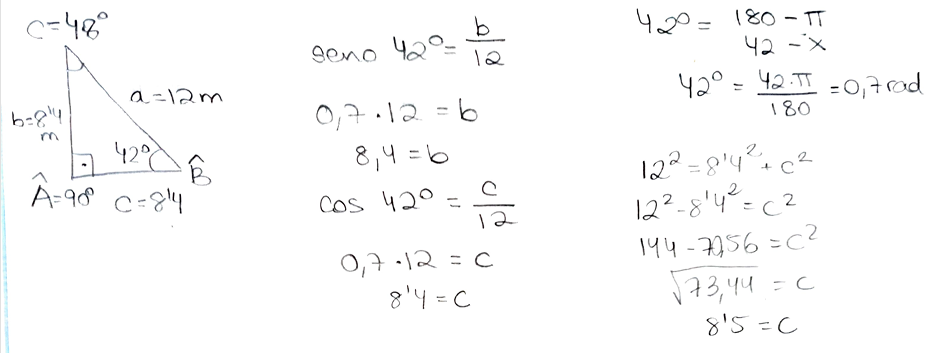 C=48°
a=12m
b=8'4
m
42°
B̂
Â=90° C=8'4
seno 42° = b/12
0,7 · 12 = b
8,4 = b
cos 42° = c/12
0,7 · 12 = c
8'4 = c
42° = 180 - π
42 - x
42° = 42·π/180 = 0,7 rad
12² = 8'4² + c²
12² - 8'4² = c²
144 - 70,56 = c²
√73,44 = c
8'5 = c